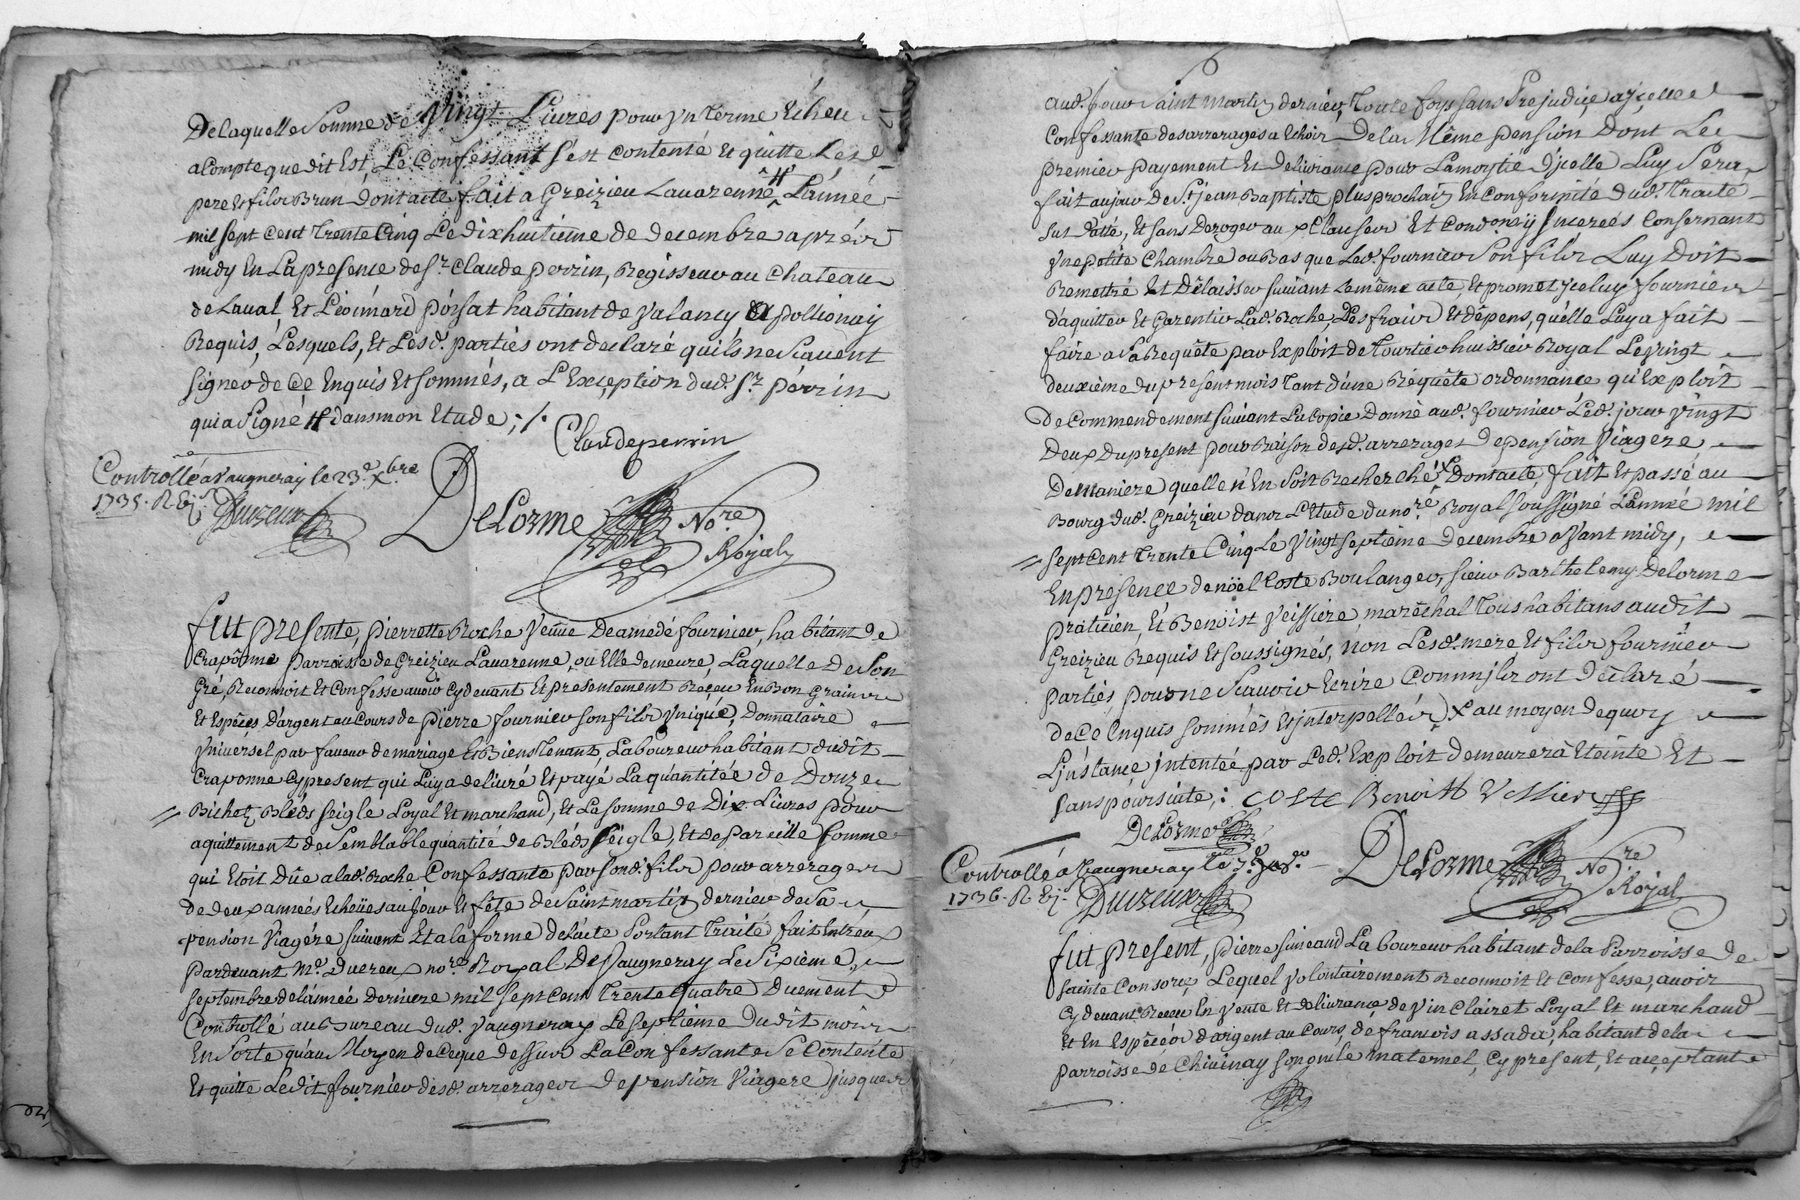 De laquelle Somme de Vingt Livres pour un terme Echeu
a Compte que dit Est, Le Confessant s'est contenté et quitte Lesd.
pere et fils Brun dont acte fait a Greizieu Lavarenne # L'année
mil sept cent trente Cinq Le dix huitieme de decembre après
midy En La presence de Sr. Claude perrin, Regisseur au chateau
de Laval Et Leonnard poisat habitant de valancy apollionay
Requis, Lesquels, Et Lesd. partiés ont declaré quils ne Scavent
signer de Ce Enquis Et sommés, a L'Exception dud. Sr. perrin
qui a Signé # dans mon Etude ; /.
Claude perrin
Controllé a Vaugneray le 23e. Xbre
1735. R Ej. s
Duvzeux
DeLorme No.re
Royal
fut presente, pierrette Roche Veuve De amedé fournier, habitant de
Craponne parroisse de Greizieu Lavarenne, ou Elle demeure, Laquelle de Son
Gré, Reconnoit Et Confesse avoir Cy devant Et presentement Réçeu En Bon Grain
Et Espêces D'argent au Cours de pierre fournier son fils Vnique, Donnataire
Vniversel par faveur de mariage Et Biens tenant, Laboureur habitant dudit
Craponne Cy present qui Luy a delivré Et payé La quantitée de Douze
Bichetz Bléds seiglé Loyal Et marchand, Et La somme de Dix Livres pour
aquittement de Semblable quantité de Bléds Seigle, Et de pareille somme
qui Etoit Dûe a lad. Roche Confessante par sond. fils pour arrerages
de deux années Echeües au jour Et fête de Saint martin dernier de Sa
pension Viagére suivant Et a la forme de L'acte Portant Traité fait Entr'eux
pardevant Me. Duvzeux no.re Royal De Vaugneray Le Sixième
septembre de l'année derniere mil sept cent trente quatre duement
Controllé au Bureau dud. Vaugneray Le septieme dudit mois
En Sorte qu'au Moyen de Ceque dessus La Confessante Se Contente
Et quitte Ledit fournier desd. arrerages de pension Viagere jusques
aud. jour Saint martin dernier, Toute foys sans Prejudice a ycelle
Confessante des arrerages a Echoir De la Même pension Dont Le
premier payement Et delivrance pour La moytié d'ycelle Luy Sera
fait au jour de St. jean Baptiste plus prochain En Conformité dud. Traité
sus datté, Et sans Deroger aux Clauses Et Conditions y Incereés Consernant
Vne petite Chambre ou Bas que Led. fournier Son fils Luy Doit
Remettré Et Délaisser suivant Le même acte, Et promet yceluy fournier
d'aquitter Et Garentir Lad. Roche, Des frais Et dépens, quélle Luy a fait
faire a Sa Requête par Exploit de Tourtier huissier Royal Le Vingt
deuxième du present mois tant d'une Réquête ordonnance qu'Exploit
De Commendement suivant La Copie Donné aud. fournier Led. jour Vingt
Deux du present pour Raison desd. arrerages de pension Viagere
De Maniere quelle n'En Soit Recherché x Dont acte, fait Et passé au
Bourg dud. Greizieu dans L'Etude du no.re Royal Soussigné L'année mil
sept Cent trente Cinq Le Vingt septieme Decembre avant midy,
En presence de nöel Coste Boulanger, sieur Barthelemy Delorme
praticien, Et Benoist Veissiere maréchal Tous habitans audit
Greizieu Requis Et soussignés, non Lesd. mere Et fils fournier
partiés, pour ne Scavoir Ecrire Comm'ils ont déclaré
de Ce Enquis sommés Et jnterpellés, x au moyen de quoy
L'jnstance jntentée par Led. Exploit demeurera Eteinte Et
sans poursuite ; Coste Benoist Vessier
DeLorme
Controllé a Vaugneray le
1736. R Ej.
Duvzeux
DeLorme No.re
Royal
fut present, pierre Laboureur habitant de la Parroisse de
sainte Consorce, Lequel Volontairement Reconnoit Et Confesse, avoir
Cy devant Reçeu En Vente Et delivrance de Vin Clairet Loyal Et marchand
Et En Espêces d'argent au Cours, de francois assada, habitant de la
parroisse de Chivinay son oncle maternel, Cy present, Et acceptant